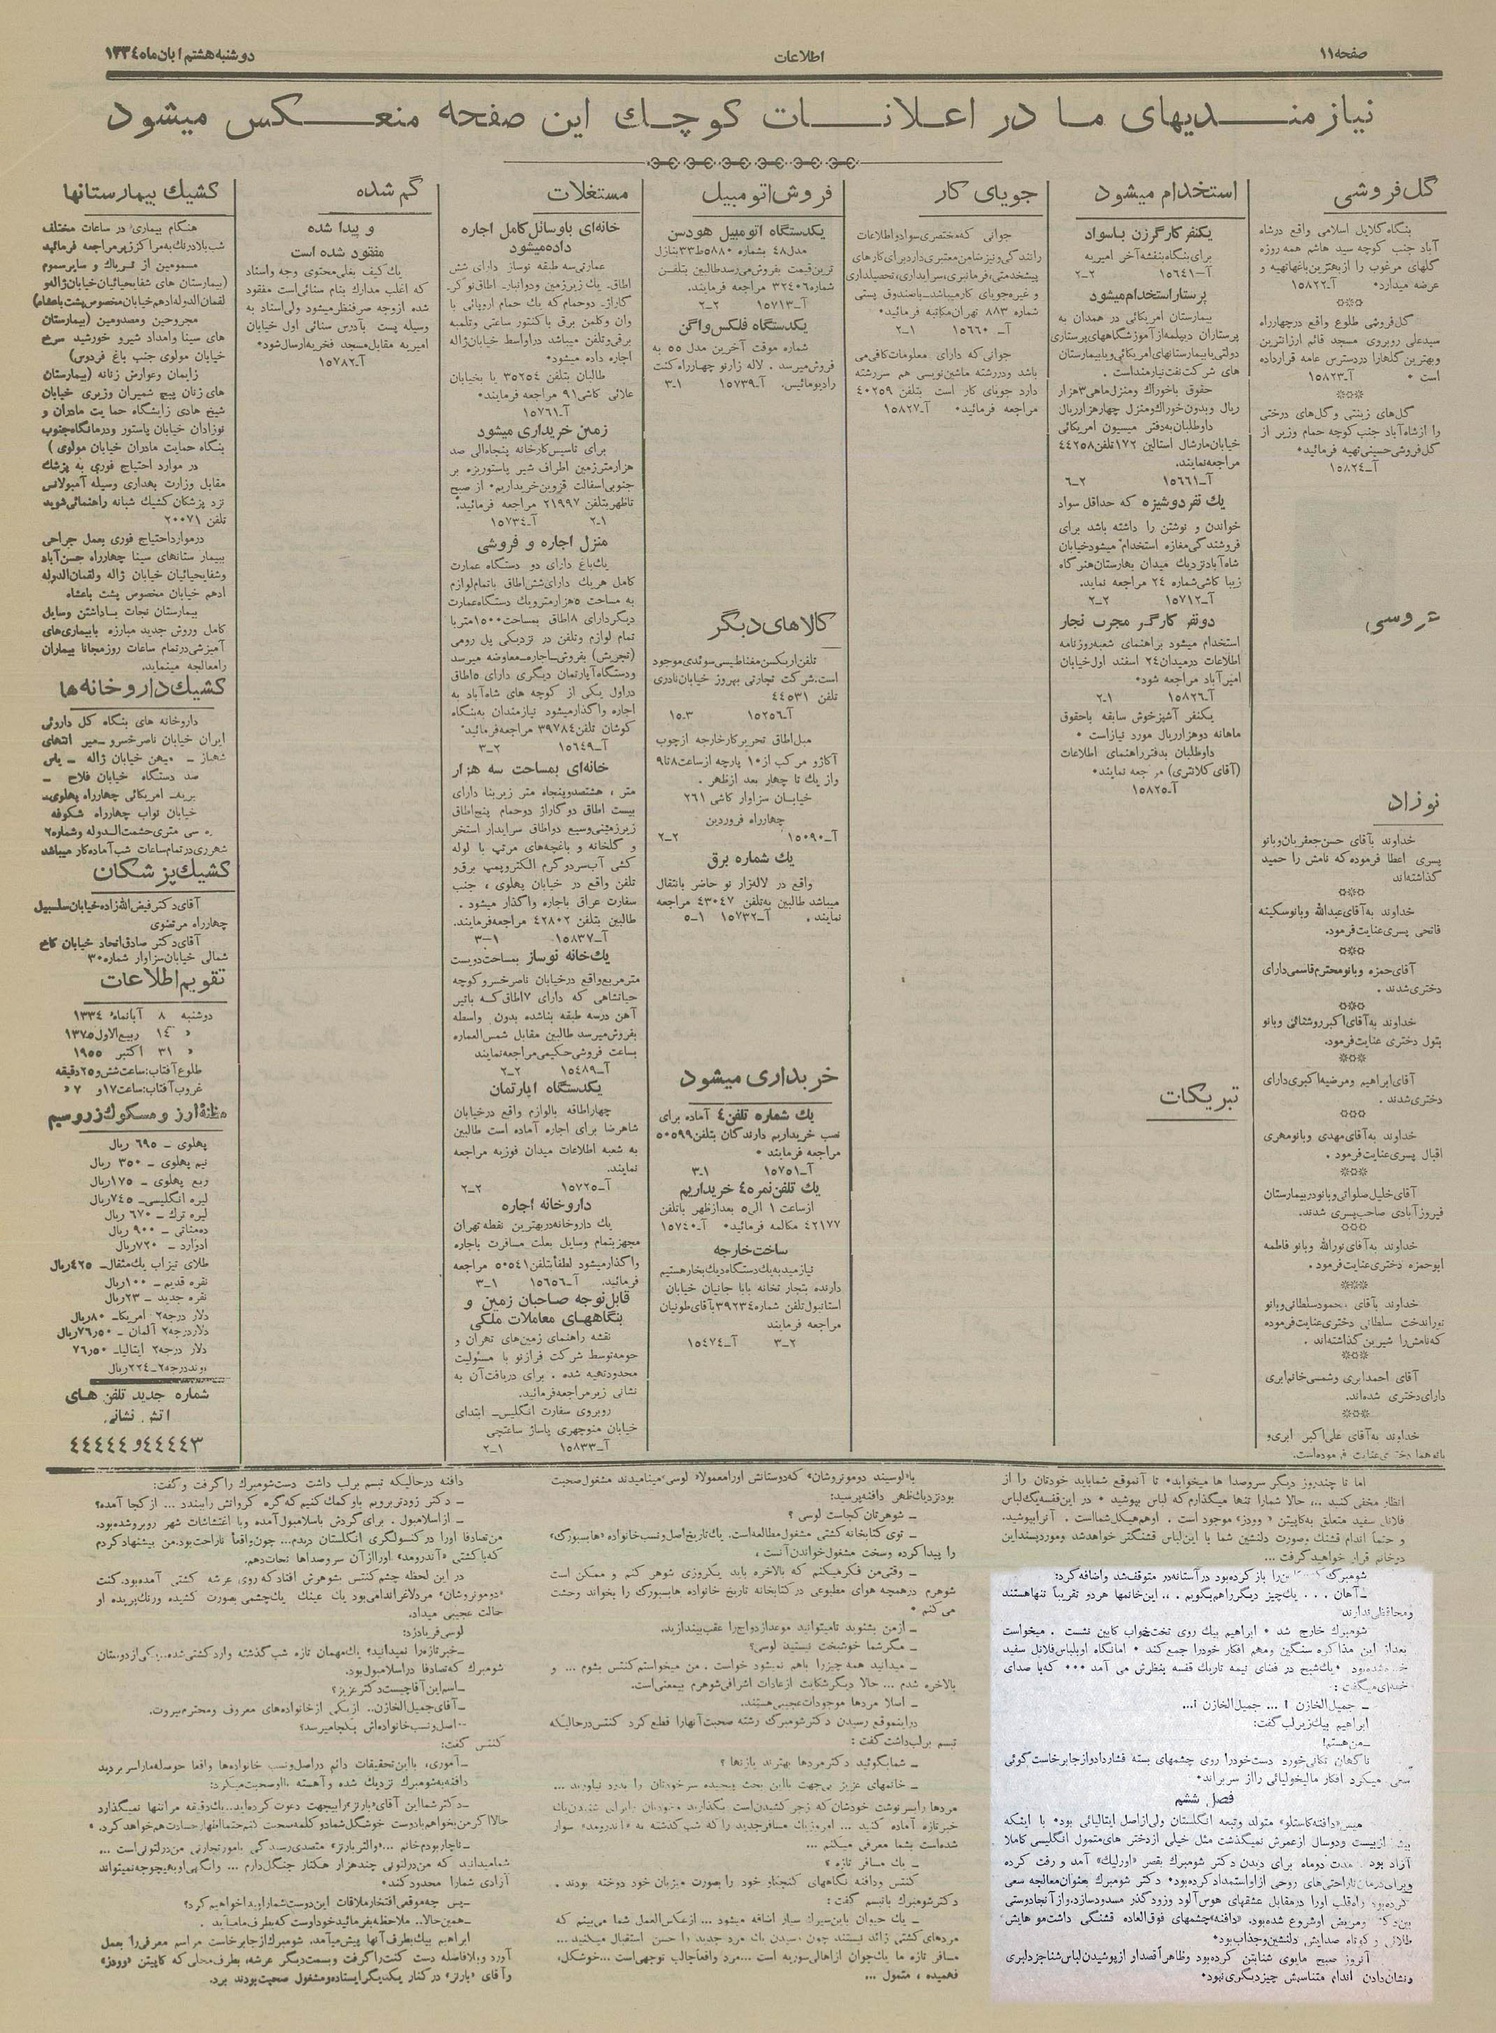 صفحه ۱۱
اطلاعات
دوشنبه هشتم آبان ماه ۱۳۳٤
نیازمندیهای ما در اعلانات کوچک این صفحه منعکس میشود
گل فروشی
بنگاه گلایل اسلامی واقع در شاه
آباد جنب کوچه سید هاشم همه روزه
گلهای مرغوب را از بهترین باغها تهیه و
عرضه میدارد•      آ–۱۵۸۲۲
گل فروشی طلوع واقع در چهارراه
سیدعلی روبروی مسجد قائم ارزانترین
و بهترین گلها را در دسترس عامه قرار داده
است •      آ–۱۵۸۲۳
گل‌های زینتی و گل‌های درختی
را از شاه آباد جنب کوچه حمام وزیر از
گل فروشی حسینی تهیه فرمائید•
آ–۱۵۸۲٤
عروسی
نوزاد
خداوند بآقای حسن جعفریان و بانو
پسری اعطا فرموده که نامش را حمید
گذاشته‌اند
خداوند به آقای عبدالله و بانو سکینه
فاتحی پسری عنایت فرمود.
آقای حمزه و بانو محترم قاسمی دارای
دختری شدند .
خداوند به آقای اکبر روشنائی و بانو
بتول دختری عنایت فرمود.
آقای ابراهیم و مرضیه اکبری دارای
دختری شدند .
خداوند به آقای مهدی و بانو مهری
اقبال پسری عنایت فرمود .
آقای خلیل صلواتی و بانو در بیمارستان
فیروزآبادی صاحب پسری شدند.
خداوند به آقای نورالله و بانو فاطمه
ابوحمزه دختری عنایت فرمود .
خداوند بآقای محمود سلطانی و بانو
توراندخت سلطانی دختری عنایت فرموده
که نامش را شیرین گذاشته‌اند .
آقای احمد ابری و شمسی خانم ابری
دارای دختری شده‌اند.
خداوند به آقای علی اکبر ابری و
استخدام میشود
یکنفر کارگر زن باسواد
برای بنگاه بنفشه آخر امیریه
آ–۱۵٦٤۱      ۲–۲
پرستار استخدام میشود
بیمارستان امریکائی در همدان به
پرستاران دیپلمه از آموزشگاههای پرستاری
دولتی یا بیمارستانهای امریکائی و یا بیمارستان
های شرکت نفت نیازمند است .
حقوق باخوراک و منزل ماهی ۳ هزار
ریال و بدون خوراک و منزل چهار هزار ریال
داوطلبان به دفتر میسیون امریکائی
خیابان مارشال استالین ۱۷۲ تلفن ٤٤۲۵۸
مراجعه نمایند.
آ–۱۵٦٦۱      ٦–۲
یک نفر دوشیزه که حداقل سواد
خواندن و نوشتن را داشته باشد برای
فروشندگی مغازه استخدام میشود خیابان
شاه آباد نزدیک میدان بهارستان هنرگاه
زیبا کاشی شماره ۲٤ مراجعه نماید.
آ–۱۵۷۱۲      ۲–۲
دو نفر کارگر مجرب نجار
استخدام میشود براهنمای شعبه روزنامه
اطلاعات در میدان ۲٤ اسفند اول خیابان
امیرآباد مراجعه شود•
آ–۱۵۸۲٦      ۲–۱
یکنفر آشپز خوش سابقه باحقوق
ماهانه دو هزار ریال مورد نیاز است •
داوطلبان بدفتر راهنمای اطلاعات
(آقای کلانتری) مراجعه نمایند•
آ–۱۵۸۲۵
تبریکات
جویای کار
جوانی که مختصری سواد و اطلاعات
رانندگی و نیز ضامن معتبری دارد برای کارهای
پیشخدمتی، فرمانبری، سرایداری، تحصیلداری
و غیره جویای کار میباشد–با صندوق پستی
شماره ۸۸۳ تهران مکاتبه فرمائید•
آ– ۱۵٦٦۰      ۲–۱
جوانی که دارای معلومات کافی می
باشد و در رشته ماشین نویسی هم سررشته
دارد جویای کار است بتلفن ٤۰۲۵۹
مراجعه فرمائید•      آ–۱۵۸۲۷
فروش اتومبیل
یکدستگاه اتومبیل هودسن
مدل ٤۸ بشماره ۵۸۸۰ ط ۳۳ بنازل
ترین قیمت بفروش می‌رسد طالبین بتلفن
شماره ۳۲٤۰٦ مراجعه فرمایند.
آ–۱۵۷۱۳      ۲–۲
یکدستگاه فلکس واگن
شماره موقت آخرین مدل ۵۵ به
فروش میرسد . لاله زار نو چهارراه کنت
رادیو مائیس.   آ–۱۵۷۳۹      ۳–۱
کالاهای دیگر
تلفن اریکسن مغناطیسی سوئدی موجود
است.شرکت تجارتی بهروز خیابان نادری
تلفن ٤٤۵۳۱
آ–۱۵۲۵٦      ۱۵–۳
مبل اطاق تحریر کار خارجه از چوب
آکاژو مرکب از ۱۰ پارچه از ساعت ۸ تا ۹
و از یک تا چهار بعد از ظهر .
خیابان سزاوار کاشی ۲٦۱
چهارراه فروردین
آ–۱۵۰۹۰      ۲–۲
یک شماره برق
واقع در لاله‌زار نو حاضر بانتقال
میباشد طالبین به تلفن ٤۳۰٤۷ مراجعه
نمایند ،   آ–۱۵۷۳۲      ۵–۱
خریداری میشود
یک شماره تلفن ٤ آماده برای
نصب خریداریم دارندگان بتلفن ۵۰۵۹۹
مراجعه فرمایند •
آ–۱۵۷۵۱      ۳–۱
یک تلفن نمره ٤ خریداریم
از ساعت ۱ الی ۵ بعد از ظهر با تلفن
٤۲۱۷۷ مکالمه فرمائید•   آ–۱۵۷٤۰
ساخت خارجه
نیازمند به یک دستگاه دیگ بخار هستیم
دارنده بتجارتخانه بابا جانیان خیابان
استانبول تلفن شماره ۳۹۲۳٤ بآقای طونیان
مراجعه فرمایند
آ–۱۵٤۷٤      ۳–۲
مستغلات
خانه‌ای با وسائل کامل اجاره
داده میشود
عمارتی سه طبقه نوساز دارای شش
اطاق. یک زیرزمین و دو انبار. اطاق نوکر.
گاراژ. دو حمام که یک حمام اروپائی با
وان و کلمن برق با کنتور ساعتی و تلمبه
برقی و تلفن میباشد در اواسط خیابان ژاله
اجاره داده میشود•
طالبان بتلفن ۳۵۲۵٤ یا بخیابان
علائی کاشی ۹۱ مراجعه فرمایند•
آ–۱۵۷٦۱
زمین خریداری میشود
برای تاسیس کارخانه پنجاه الی صد
هزار متر زمین اطراف شیر پاستوریزه بر
جنوبی اسفالت قزوین خریداریم• از صبح
تا ظهر بتلفن ۲۱۹۹۷ مراجعه فرمائید.
آ–۱۵۷۳٤      ۲–۱
منزل اجاره و فروشی
یک باغ دارای دو دستگاه عمارت
کامل هر یک دارای شش اطاق با تمام لوازم
به مساحت ۵ هزار متر و یک دستگاه عمارت
دیگر دارای ۸ اطاق بمساحت ۱۵۰۰ متر با
تمام لوازم و تلفن در نزدیکی پل رومی
(تجریش) بفروش–اجاره–معاوضه میرسد
و دستگاه آپارتمان دیگری دارای ۵ اطاق
در اول یکی از کوچه های شاه آباد به
اجاره واگذار میشود نیازمندان به بنگاه
کوشان تلفن ۳۹۷۸٤ مراجعه فرمائید•
آ–۱۵٦٤۹      ۳–۲
خانه‌ای بمساحت سه هزار
متر ، هشتصد و پنجاه متر زیر بنا دارای
بیست اطاق دو گاراژ دو حمام پنج اطاق
زیرزمینی وسیع دو اطاق سرایدار استخر
و گلخانه و باغچه‌های مرتب با لوله
کشی آب سرد و گرم الکتروپمپ برق و
تلفن واقع در خیابان پهلوی ، جنب
سفارت عراق باجاره واگذار میشود .
طالبین بتلفن ٤۲۸۰۲ مراجعه فرمایند.
آ–۱۵۸۳۷      ۳–۱
یک خانه نوساز بمساحت دویست
متر مربع واقع در خیابان ناصرخسرو کوچه
حیاتشاهی که دارای ۷ اطاق که باتیر
آهن در سه طبقه بنا شده بدون واسطه
بفروش میرسد طالبین مقابل شمس العماره
بساعت فروشی حکیمی مراجعه نمایند
آ–۱۵٤۸۹      ۲–۲
یکدستگاه اپارتمان
چهار اطاقه بالوازم واقع در خیابان
شاهرضا برای اجاره آماده است طالبین
به شعبه اطلاعات میدان فوزیه مراجعه
نمایند.
آ–۱۵۷۲۵      ۲–۲
داروخانه اجاره
یک داروخانه در بهترین نقطه تهران
مجهز بتمام وسایل بعلت مسافرت باجاره
واگذار میشود لطفاً بتلفن ۵۰۵٤۱ مراجعه
فرمائید.   آ–۱۵٦۵٦      ۳–۱
قابل توجه صاحبان زمین و
بنگاههای معاملات ملکی
نقشه راهنمای زمین‌های تهران و
حومه توسط شرکت فرازنو با مسئولیت
محدود تهیه شده . برای دریافت آن به
نشانی زیر مراجعه فرمائید.
روبروی سفارت انگلیس– ابتدای
خیابان منوچهری پاساژ ساعتچی
آ–۱۵۸۳۳      ۲–۱
گم شده
و پیدا شده
مفقود شده است
یک کیف بغلی محتوی وجه و اسناد
که اغلب مدارک بنام سنائی است مفقود
شده از وجه صرفنظر میشود ولی اسناد به
وسیله پست بآدرس سنائی اول خیابان
امیریه مقابل مسجد فخریه ارسال شود•
آ–۱۵۷۸۲
کشیک بیمارستانها
هنگام بیماری در ساعات مختلف
شب بلادرنگ به مراکز زیر مراجعه فرمائید
مسمومین از تریاک و سایر سموم
(بیمارستان های شفا یحیائیان خیابان ژاله و
لقمان الدوله ادهم خیابان مخصوص پشت باغشاه)
مجروحین و مصدومین (بیمارستان
های سینا و امداد شیر و خورشید سرخ
خیابان مولوی جنب باغ فردوس)
زایمان و عوارض زنانه (بیمارستان
های زنان پیچ شمیران وزیری خیابان
شیخ هادی زایشگاه حمایت مادران و
نوزادان خیابان پاستور و درمانگاه جنوب
بنگاه حمایت مادران خیابان مولوی )
در موارد احتیاج فوری به پزشک
مقابل وزارت بهداری وسیله آمبولانس
نزد پزشکان کشیک شبانه راهنمائی شوید
تلفن ۲۰۰۷۱
در موارد احتیاج فوری بعمل جراحی
ببیمارستانهای سینا چهارراه حسن آباد
و شفا یحیائیان خیابان ژاله و لقمان الدوله
ادهم خیابان مخصوص پشت باغشاه
بیمارستان نجات با داشتن وسایل
کامل و روش جدید مبارزه بابیماری‌های
آمیزشی در تمام ساعات روز مجانا بیماران
را معالجه مینماید.
کشیک داروخانه‌ها
داروخانه های بنگاه کل داروئی
ایران خیابان ناصر خسرو – میر انتهای
شهباز – میهن خیابان ژاله – یاس
صد دستگاه خیابان فلاح –
بریه– امریکائی چهارراه پهلوی–
خیابان نواب چهارراه شکوفه
سی متری حشمت الدوله و شماره ۲
شهرری در تمام ساعات شب آماده کار میباشد
کشیک پزشکان
آقای دکتر فیض الله زاده خیابان سلسبیل
چهارراه مرتضوی
آقای دکتر صادق اتحاد خیابان کاخ
شمالی خیابان سزاوار شماره ۳۰
تقویم اطلاعات
دوشنبه ۸ آبانماه ۱۳۳٤
« ۱٤ ربیع الاول ۱۳۷۵
« ۳۱ اکتبر ۱۹۵۵
طلوع آفتاب: ساعت شش و ۲۵ دقیقه
غروب آفتاب: ساعت ۱۷ و ۷ «
مظنه ارز و مسکوک زر و سیم
پهلوی – ٦۹۵ ریال
نیم پهلوی – ۳۵۰ ریال
ربع پهلوی – ۱۷۵ ریال
لیره انگلیسی– ۷٤۵ ریال
لیره ترک – ٦۷۰ ریال
ده مناتی – ۹۰۰ ریال
ادوارد – ۷۲۰ ریال
طلای تیزاب یک مثقال– ٤۲۵ ریال
نقره قدیم – ۱۰۰ ریال
نقره جدید – ۲۳ ریال
دلار درجه ۲ امریکا– ۸۰ ریال
دلار درجه ۲ آلمان – ۷٦٫۵۰ ریال
دلار درجه ۲ ایتالیا– ۷٦٫۵۰
پوند درجه ۲– ۲۲٤ ریال
شماره جدید تلفن های
آتش نشانی
٤٤٤٤۳ و ٤٤٤٤٤
اما تا چند روز دیگر سر و صدا ها میخوابد• تا آنموقع شما باید خودتان را از
انظار مخفی کنید ..، حالا شما را تنها میگذارم که لباس بپوشید • در این قفسه یک لباس
فلانل سفید متعلق به کاپیتن « وودز» موجود است . او هم هیکل شماست . آنرا بپوشید.
و حتماً اندام قشنگ و صورت دلنشین شما با این لباس قشنگتر خواهد شد و مورد پسند این
دو خانم قرار خواهید گرفت ...
شومبرک را باز کرده بود در آستانه در متوقف شد و اضافه کرد:
– آهان . . . یک چیز دیگر را هم بگویم . .. این خانمها هر دو تقریباً تنها هستند
و محافظی ندارند
شومبرک خارج شد • ابراهیم بیک روی تختخواب کابین نشست . میخواست
بعد از این مذاکره سنگین و مهم افکار خود را جمع کند • اما نگاه او بلباس فلانل سفید
یک شبح در فضای نیمه تاریک قفسه بنظرش می آمد ••• که با صدای
خفه‌ای میگفت :
– جمیل الخازن ! ... جمیل الخازن !...
ابراهیم بیک زیر لب گفت:
–من هستم!
ناگهان تکانی خورد دست خود را روی چشمهای بسته فشار داد و از جا برخاست گوئی
سعی میکرد افکار مالیخولیائی را از سر براند•
فصل ششم
میس «دافنه کاستلو» متولد و تبعه انگلستان ولی از اصل ایتالیائی بود• با اینکه
بیش از بیست و دو سال از عمرش نمیگذشت مثل خیلی از دختر های متمول انگلیسی کاملا
آزاد بود . مدت دو ماه برای دیدن دکتر شومبرک بقصر «اورلیک» آمد و رفت کرده
و برای درمان ناراحتی‌های روحی از او استمداد کرده بود• دکتر شومبرک بعنوان معالجه سعی
کرده بود راه قلب او را در مقابل عشقهای هوس آلود و زودگذر مسدود سازد.و از آنجا دوستی
بین دکتر و مریض او شروع شده بود. «دافنه» چشمهای فوق العاده قشنگی داشت موهایش
طلائی و کوتاه صدایش دلنشین و جذاب بود•
آنروز صبح مایوی شنا بتن کرده بود و ظاهراً قصد او از پوشیدن لباس شنا جز دلبری
و نشان دادن اندام متناسبش چیز دیگری نبود•
با «لوسیند دومونروشان» که دوستانش او را معمولا« لوسی» مینامیدند مشغول صحبت
بود نزدیک ظهر دافنه پرسید:
– شوهرتان کجاست لوسی ؟
– توی کتابخانه کشتی مشغول مطالعه است. یک تاریخ اصل و نسب خانواده «هابسبورگ»
را پیدا کرده و سخت مشغول خواندن آنست ،
– وقتی من فکر میکنم که بالاخره باید یکروزی شوهر کنم و ممکن است
شوهرم در همچه هوای مطبوعی در کتابخانه تاریخ خانواده هابسبورگ را بخواند وحشت
می کنم •
– از من بشنوید تا میتوانید موعد ازدواج را عقب بیندازید.
– مگر شما خوشبخت نیستید لوسی؟
– میدانید همه چیز را باهم نمیشود خواست . من میخواستم کنتس بشوم ... و
بالاخره شدم ... حالا دیگر شکایت از عادات اشرافی شوهرم بیمعنی است.
– اصلا مردها موجودات عجیبی هستند.
در اینموقع رسیدن دکتر شومبرک رشته صحبت آنها را قطع کرد کنتس در حالیکه
تبسم بر لب داشت گفت :
– شما بگوئید دکتر مردها بهترند یا زنها ؟
– خانمهای عزیز بی‌جهت با این بحث پیچیده سر خودتان را بدرد نیاورید ...
مردها را بسرنوشت خودشان که زجر کشیدن است بگذارید و خودتان را برای شنیدن یک
خبر تازه آماده کنید ... امروز یک مسافر جدید را که شب گذشته به «آندرومد» سوار
شده است بشما معرفی میکنم ...
– یک مسافر تازه ؟
کنتس و دافنه نگاههای کنجکاو خود را بصورت میزبان خود دوخته بودند .
دکتر شومبرک باتبسم گفت :
– یک حیوان باین سیرک سیار اضافه میشود ... از عکس‌العمل شما می‌بینم که
مردهای کشتی زائد نیستند چون رسیدن یک مرد جدید را حسن استقبال میکنید...
مسافر تازه ما یک جوان از اهالی سوریه است ...مرد واقعاً جالب توجهی است...خوشگل،
فهمیده ، متمول ...
دافنه در حالیکه تبسم بر لب داشت دست شومبرک را گرفت و گفت:
– دکتر زودتر برویم باو کمک کنیم که گره کرواتش را ببندد ... از کجا آمده؟
– از اسلامبول . برای گردش باسلامبول آمده و با اغتشاشات شهر روبرو شده بود.
من تصادفا او را در کنسولگری انگلستان دیدم... چون واقعاً ناراحت بود.من پیشنهاد کردم
که با کشتی «آندرومد» او را از آن سر و صداها نجات دهم.
در این لحظه چشم کنتس بشوهرش افتاد که روی عرشه کشتی آمده بود. کنت
«دومونروشان» مرد لاغراندامی بود یک عینک یک چشمی بصورت کشیده و رنگ پریده او
حالت عجیبی میداد.
لوسی فریاد زد:
–خبر تازه را نمیدانید؟ یک مهمان تازه شب گذشته وارد کشتی شده...یکی از دوستان
شومبرک که تصادفا در اسلامبول بود.
–اسم این آقا چیست دکتر عزیز؟
–آقای جمیل‌الخازن.. از یکی از خانواده های معروف و محترم بیروت.
–اصل و نسب خانواده‌اش بکجا میرسد؟
کنتس گفت:
–آموری، با این تحقیقات دائم در اصل و نسب خانواده‌ها واقعا حوصله ما را سر بردید
دافنه به شومبرک نزدیک شده و آهسته با او صحبت میکرد:
–دکتر شما این آقای «بارتز» را بیجهت دعوت کرده‌اید...یک دقیقه مرا تنها نمیگذارد
حالا اگر من بخواهم با دوست خوشگل شما دو کلمه صحبت کنم حتماً اظهار جسارت هم خواهد کرد. •
–ناچار بودم خانم ...«والتر بارتز» متصدی رسیدگی بامور تجارتی من در لتونی است ...
شما میدانید که من در لتونی چند هزار هکتار جنگل دارم ... وانگهی او بهیچوجه نمیتواند
آزادی شما را محدود کند•
–پس چه موقعی افتخار ملاقات این دوست شما را پیدا خواهیم کرد؟
–همین حالا.. ملاحظه بفرمائید خود اوست که بطرف ما میاید .
ابراهیم بیک بطرف آنها پیش میآمد. شومبرک از جا برخاست مراسم معرفی را بعمل
آورد و بلافاصله دست کنت را گرفت و بسمت دیگر عرشه، بطرف محلی که کاپیتن «وودز»
و آقای «بارتز» در کنار یکدیگر ایستاده و مشغول صحبت بودند برد.